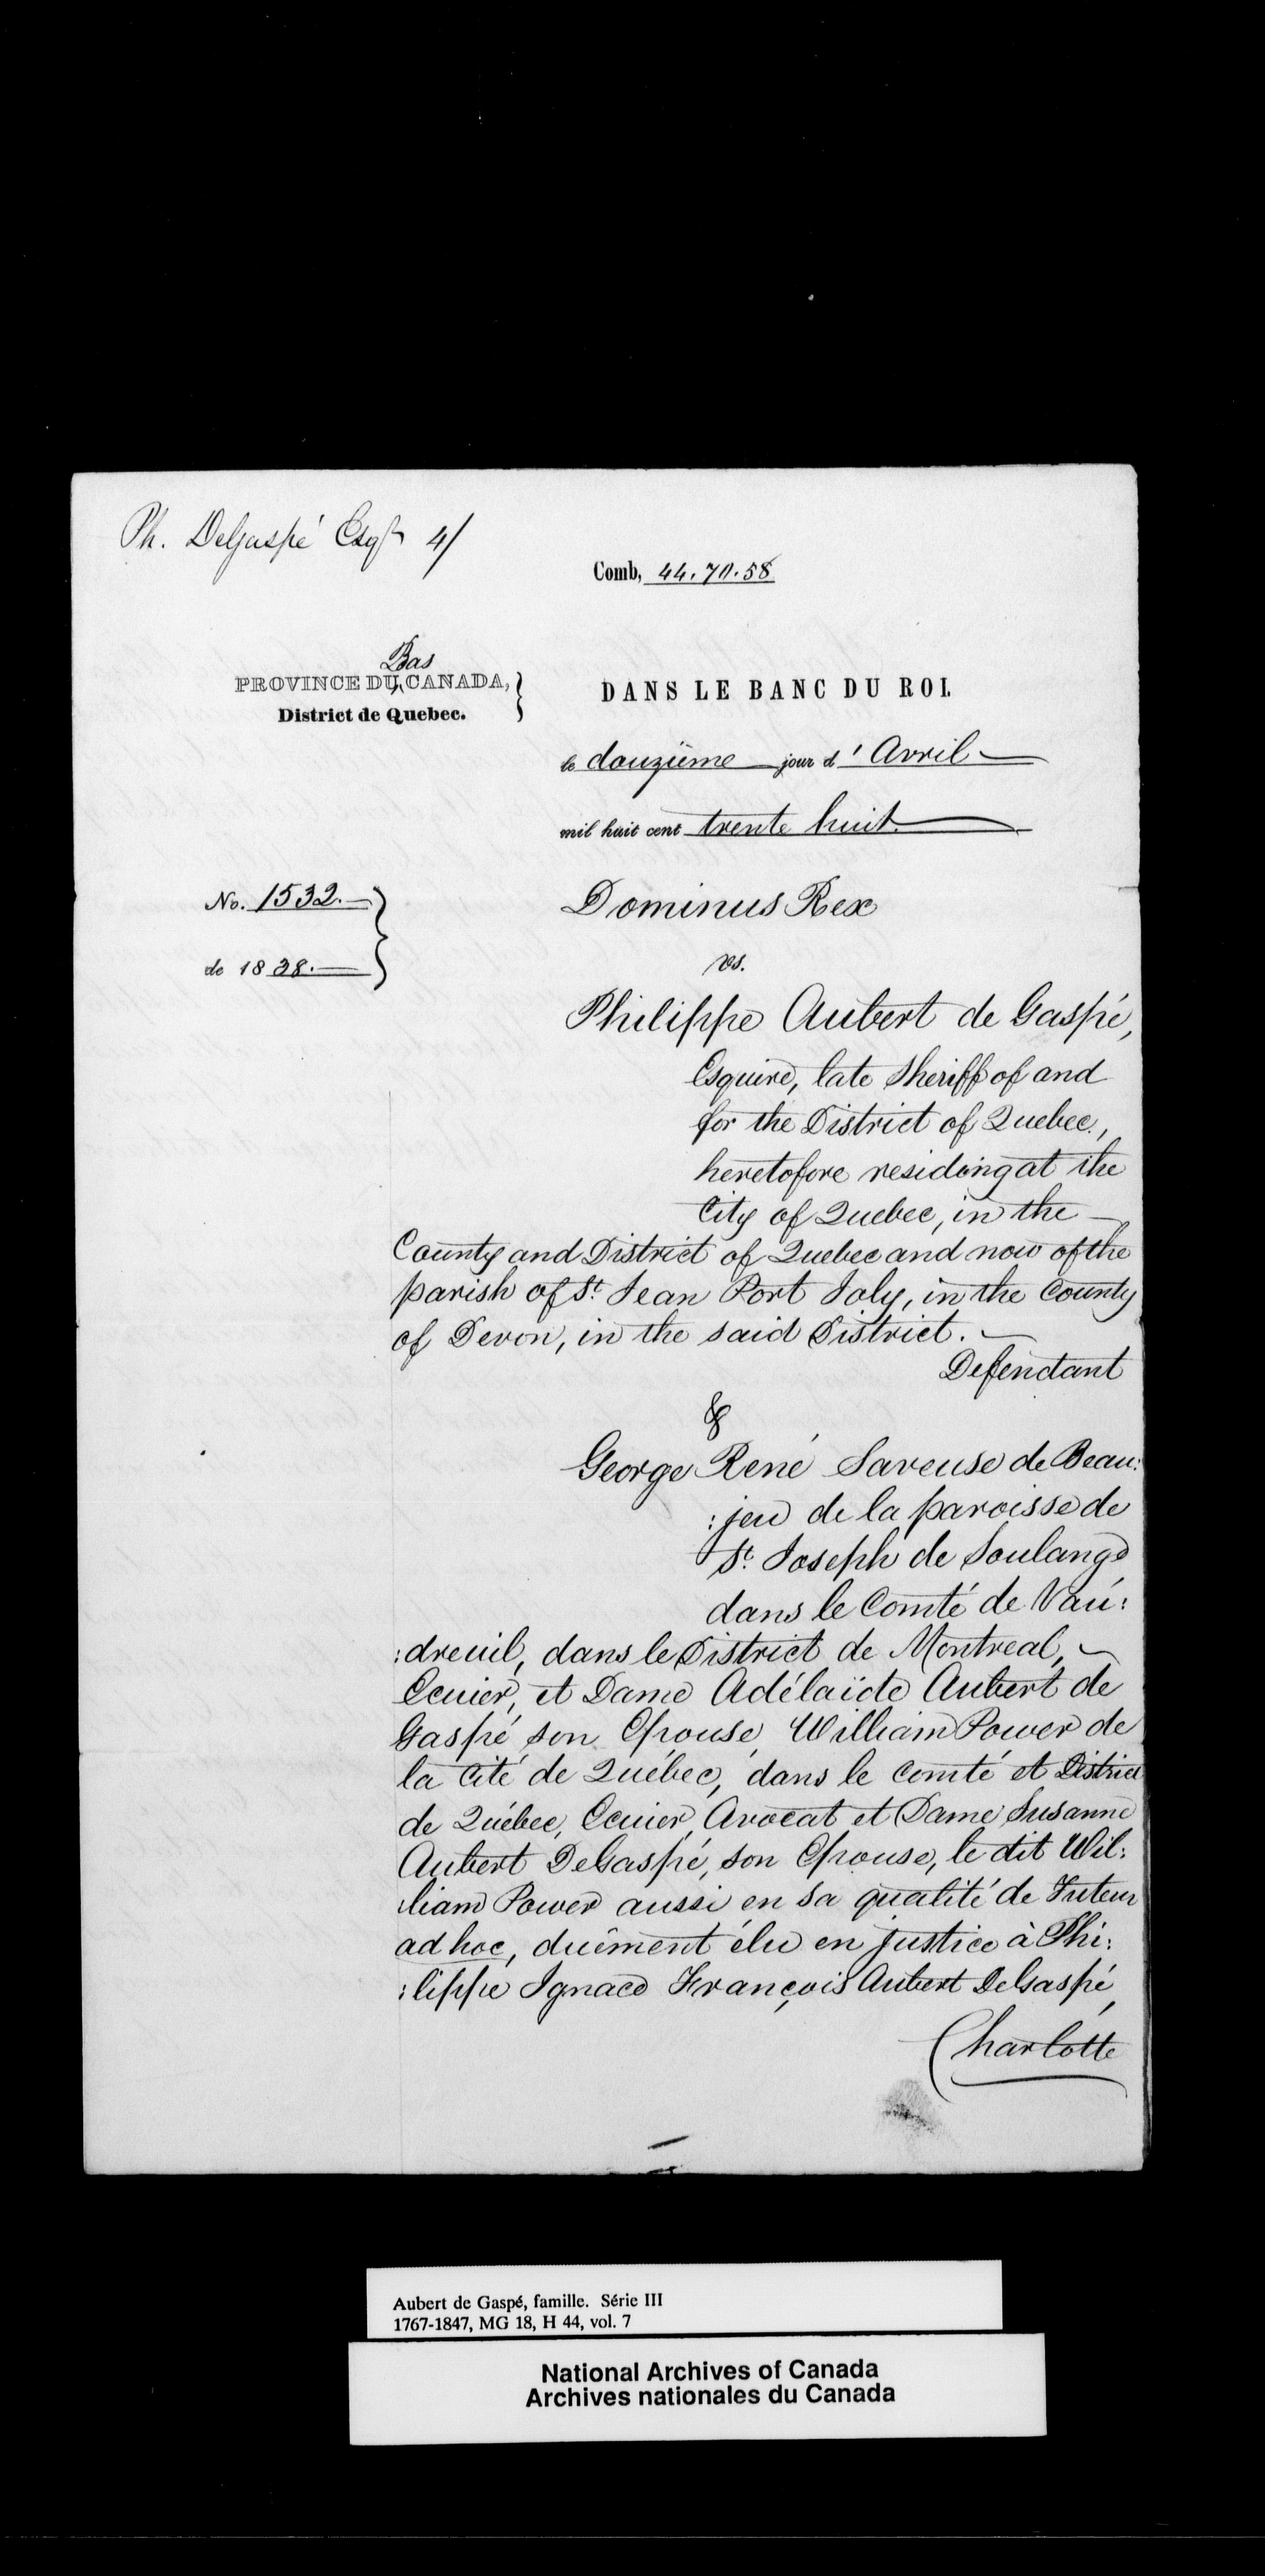 Ph. DeGaspé Esqr 4/
Comb, 44.70.58
Bas
PROVINCE DU CANADA,
District de Quebec.
DANS LE BANC DU ROI.
le douzième jour d'Avril
mil huit cent trente huit
No. 1532.
de 1838.
Dominus Rex
vs.
Philippe Aubert de Gaspé,
Esquire, late Sheriff of and
for the District of Quebec,
heretofore residing at the
City of Quebec, in the
County and District of Quebec and now of the
parish of St. Jean Port Joly, in the County
of Devon, in the said District.
Defendant
&
George René Saveuse de Beau:
:jeu de la paroisse de
St. Joseph de Soulange
dans le Comté de Vau:
:dreuil, dans le District de Montreal,
Ecuier, et Dame Adélaïde Aubert de
Gaspé son Epouse, William Power de
la Cité de Québec, dans le Comté et District
de Québec, Ecuier, Avocat et Dame Susanne
Aubert DeGaspé, son Epouse, le dit Wil:
:liam Power aussi en sa qualité de Tuteur
ad hoc, duement élu en justice à Phi:
:lippe Ignace François Aubert DeGaspé,
Charlotte
Aubert de Gaspé, famille. Série III
1767-1847, MG 18, H 44, vol. 7
National Archives of Canada
Archives nationales du Canada